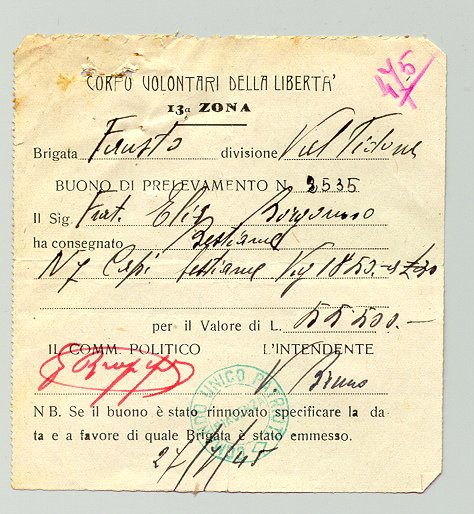 CORPO VOLONTARI DELLA LIBERTA'
475
13a ZONA
Brigata Fausto divisione Val Tidone
BUONO DI PRELEVAMENTO N. 2535
Il Sig. Frat. Elia Borgonovo
ha consegnato Bestiame
N 7 Capi bestiame Kg 1850 a £ 30
per il Valore di L. 55500.—
IL COMM. POLITICO L'INTENDENTE
Bruno
UNICO PATRIOTI
N B. Se il buono è stato rinnovato specificare la da
ta e a favore di quale Brigata è stato emmesso.